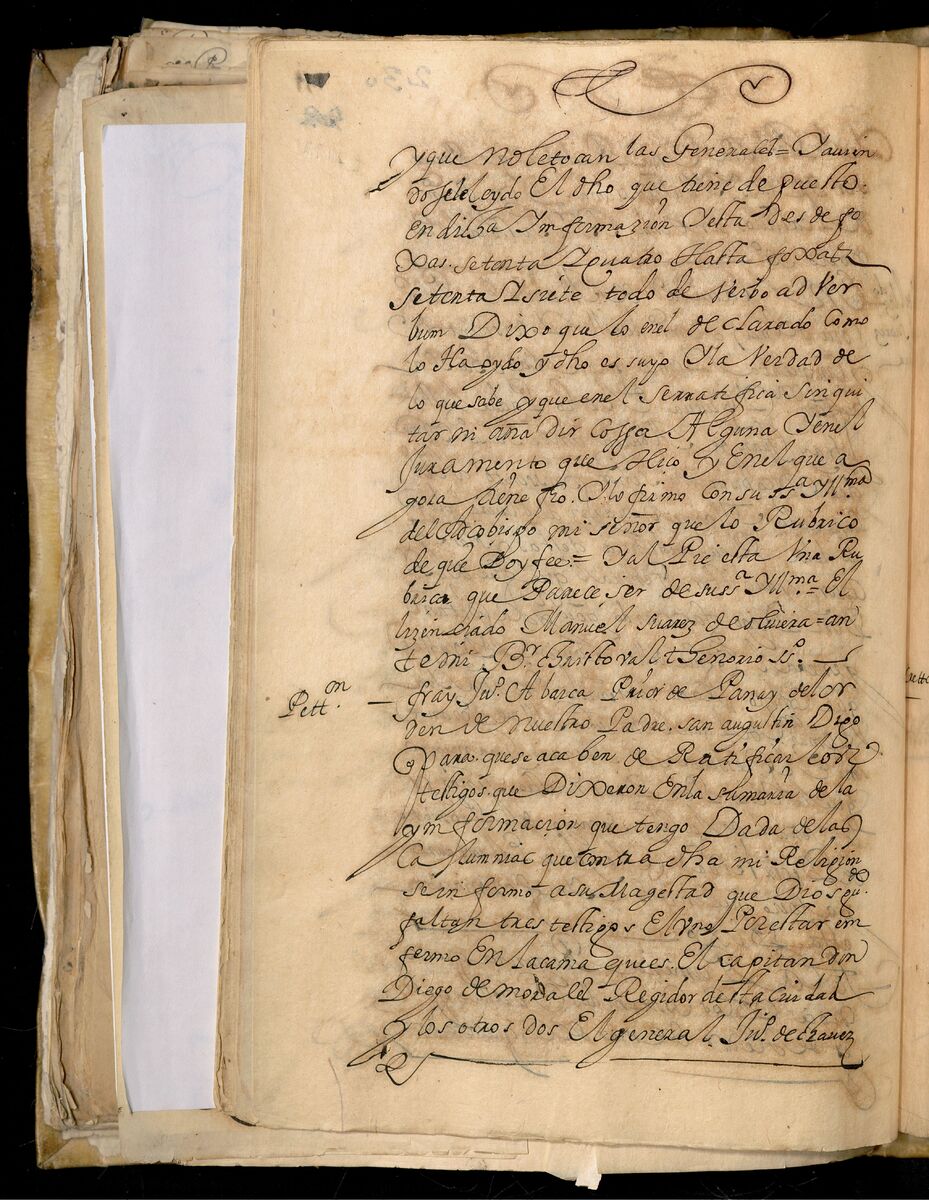 y que no le tocan las Generales = Y avien
dosele leydo El dho que tiene depuesto
en dicha Ynformazion Y esta desde fo
xas setenta Y quatro Hasta foxas
setenta Y siete todo de Verbo ad Ver
bum Dixo que lo en el declarado Como
lo Ha oydo y dho es suyo Y la Verdad de
lo que sabe y que en el se rratifica sin qui
tar ni añadir Cossa Alguna Y en el
Juramento que Hiço Y En el que a
gora tiene fho. Y lo firmo con su ssa Yllma
del Arcobispo mi señor que lo Rubrico
de que Doy fee = Y al Pie esta Una Ru
brica que Parece ser de su ssa Yllma = El
lizenciado Manuel suarez de olivera = an
te mi Br. Christoval thenorio sso.
Petton. — fray Juo. Abarca Prior de Panay del or
den de nuestro Padre san augustin Digo
Para que se acaben de Ratificar los
testigos que Dixeron En la sumaria de la
ynformacion que tengo Dada de las
Calumnias que contra dha mi Religion
se informo a su Magestad que Dios gude.
faltan tres testigos El Uno Por estar em
fermo En la cama que es El capitan don
Diego de morales Regidor desta ciudad
y los otros dos El general Juo. de Chavez